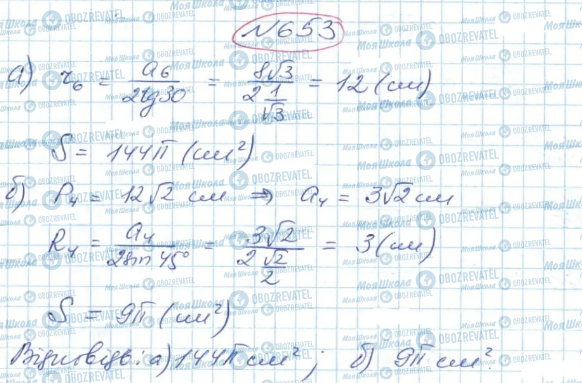 №653
а) r₆ = a₆ / 2tg30 = 8√3 / 2 1/√3 = 12 (см)
S = 144π (см²)
б) P₄ = 12√2 см ⇒ a₄ = 3√2 см
R₄ = a₄ / 2sin 45° = 3√2 / 2 √2/2 = 3 (см)
S = 9π (см²)
Відповідь: а) 144π см²; б) 9π см².
МояШкола OBOZREVATEL